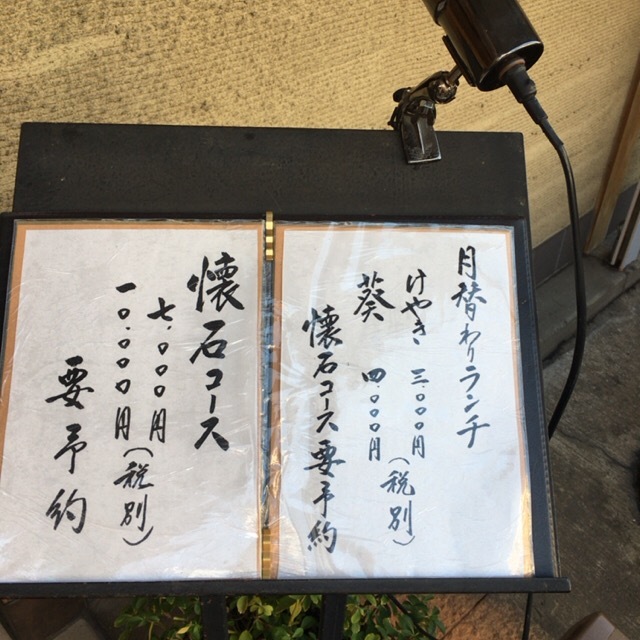 月替わりランチ
けやき 三〇〇〇円
葵 四〇〇〇円(税別)
懐石コース要予約
懐石コース
七.〇〇〇円
一〇.〇〇〇円(税別)
要予約